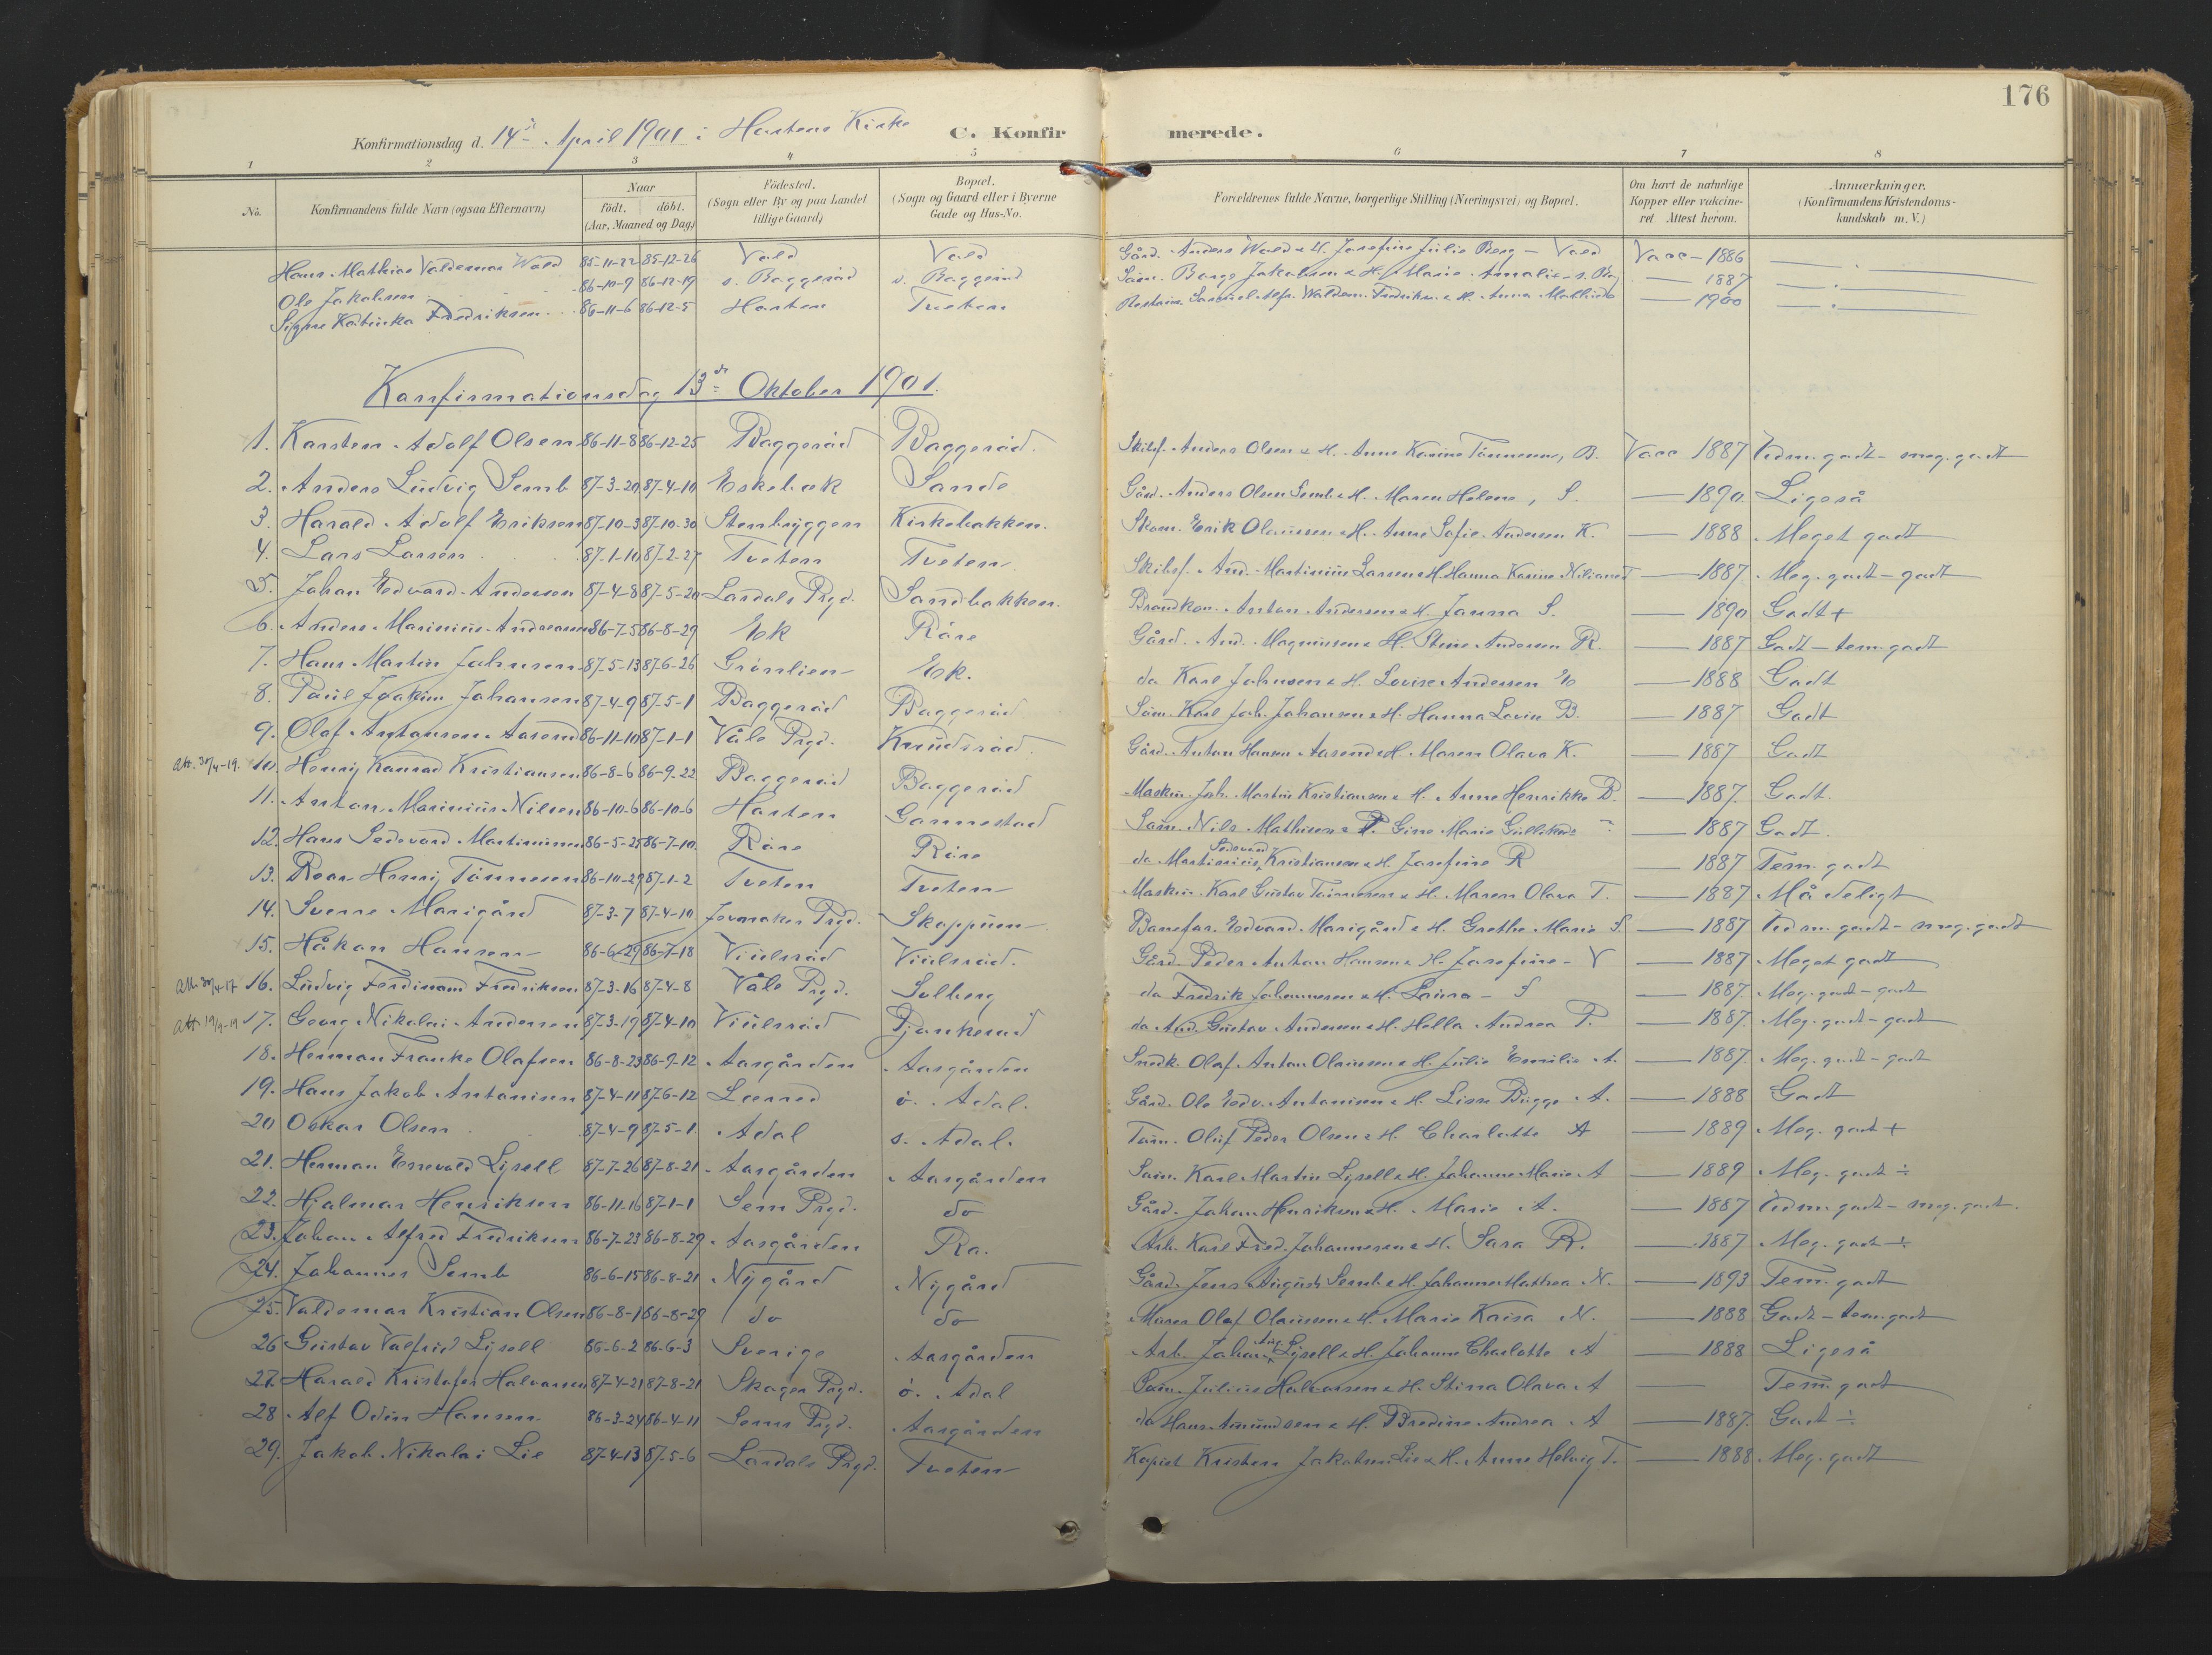 176
Konfirmationsdag d. 14de April 1901 i Hortens Kirke C. Konfirmerede.
1 2 3 4 5 6 7 8
No. Konfirmandens fulde Navn (ogsaa Efternavn) Naar født. døbt. (Aar, Maaned og Dag) Fødested. (Sogn eller By og paa Landet tillige Gaard) Bopæl. (Sogn og Gaard eller i Byerne Gade og Hus-No. Forældrenes fulde Navne, borgerlige Stilling (Næringsvei) og Bopæl. Om havt de naturlige Kopper eller vakcineret Attest herom. Anmærkninger. (Konfirmandens Kristendomskundskab m. V.)
Hans Mathias Valdemar Wold 85-11-22 85-12-26 Vold Vold Gård. Anders Wold & H. Josefine Julie Berg - Vold Vacc - 1886
Ole Jakobsen 86-10-9 86-12-19 s. Baggerød s. Baggerød Jakobsen & H. Marie Amalie 1887
Signe Katinka Fredriksen 86-11-6 86-12-5 Horten Tveten Valdem. Fredriksen & H. Anna Mathilde 1900
Konfirmationsdag 13de Oktober 1901.
1. Karsten Adolf Olsen 86-11-8 86-12-25 Baggerød Baggerød. Skibsf. Anders Olsen & H. Anne Karine Tønnesen, B. Vacc 1887 Udm. godt - meg. godt
2. Anders Ludvig Semb 87-3-20 87-4-10 Eskebæk Sande Gård. Anders Olsen Semb & H. Maren Helene, S. 1890 Ligeså
3. Harald Adolf Eriksen 87-10-3 87-10-30 Stenbryggen Kirkebakken. Skom. Erik Olaussen & H. Anne Sofie Andersen K. 1888 Meget godt
4. Lars Larsen 87-1-10 87-2-27 Tveten Tveten. Skibsf. And. Martinius Larsen & H. Hanna Karine T 1887 Meg. godt - godt
5. Johan Edvard Andersen 87-4-8 87-5-20 Lardals Prgd. Sandbakken. Anton Andersen & H. Janna S. 1890 Godt +
6. Anders Marinius Andreasen 86-7-5 86-8-29 Ek Råre Gård. And. Magnussen & H. Stine Andersen R. 1887 Godt - tem. godt
7. Hans Martin Johnsen 87-5-13 87-6-26 Grønlien Ek. do Karl Johnsen & H. Lovise Andersen E 1888 Godt
8. Paul Joakim Johansen 87-4-9 87-5-1 Baggerød Baggerød Søm. Karl Joh. Johansen & H. Hanna Lovise B. 1887 Godt
9. Olaf Antonsen Aasend 86-11-10 87-1-1 Våle Prgd. Knudsrød. Gård. Anton Hansen Aasend & H. Maren Olava K. 1887 Godt
Att. 30/4-19. 10. Henrij Konrad Kristiansen 86-8-6 86-9-22 Baggerød Baggerød Maskin. Joh. Martin Kristiansen & H. Anne Henrikke B. 1887. Godt.
11. Anton Marinius Nilsen 86-10-6 86-10-6 Horten Gannestad Søm. Nils Mathisen & P. Gine Marie 1887 Godt.
12. Hans Sedevard Martinsen 86-5-25 86-7-10. Råre Råre do Martinius Sedevard Kristiansen & H. Josefine R 1887 Tem. godt
13. Roar Henrij Tønnesen 86-10-29 87-1-2 Tveten Tveten Maskin. Karl Gustav Tønnesen & H. Maren Olava T. 1887 Mådeligt
14. Sverre Marigård 87-3-7 87-4-10 Jevnaker Prgd. Skoppum Banefor. Edvard Marigård & H. Grethe Marie S. 1887 Udm. godt - meg. godt
15. Håkon Hansen 86-6-29 86-7-18 Viulsrød Viulsrød. Gård. Peder Anton Hansen & H. Josefine - V 1887 Meget godt
Att 30/4-17 16. Ludvig Ferdinand Fredriksen 87-3-16 87-4-8 Våle Prgd. Solberg do Fredrik Johannesen & H. Laura - S 1887. Meg. godt - godt
Att 19/9-19 17. Georg Nikolai Andersen 87-3-19 87-4-10 Viulsrød Pjonkerud do And. Gustav Andersen & H. Hella Andrea P. 1887. Meg. godt - godt
18. Herman Franke Olafsen 86-8-23 86-9-12 Aasgården Aasgården Snedk. Olaf Anton Olaussen & H. Julie Emilie A. 1887. Meg. godt - godt
19. Hans Jakob Antonisen 87-4-11 87-6-12 Lørred ö. Adal. Gård. Ole Edv. Antonisen & H. Lisse Bugge A. 1888 Godt
20 Oskar Olsen 87-4-9 87-5-1 Adal s. Adal. Tøm. Oluf Peder Olsen & H. Charlotte A 1889 Meg. godt +
21. Herman Enevald Lysell 87-7-26 87-8-21 Aasgården Aasgården Søm. Karl Martin Lysell & H. Johanne Marie A 1889 Meg. godt ÷
22. Hjalmar Henriksen 86-11-16 87-1-1 Sem Prgd. do Gård. Johan Henriksen & H. Marie A. 1887 Udm. godt - meg. godt.
23. Johan Alfred Fredriksen 86-7-23 86-8-29 Aasgården Ra. Arb. Karl Fred. Johannesen & H. Sara R. 1887 Meg. godt ÷
24. Johannes Semb 86-6-15 86-8-21 Nygård Nygård Gård. Jens August Semb & H. Johanne Mathea N. 1893 Tem. godt
25. Valdemar Kristian Olsen 86-8-1 86-8-29 do do Murer Olaf Olaussen & H. Marie Kaisa N. 1888 Godt - tem. godt
26 Gustav Valfrid Lysell 86-6-2 86-6-3 Sverige Aasgården Arb. Johan Aug. Lysell & H. Johanne Charlotte A 1888 Ligeså
27. Harald Kristofer Halvorsen 87-4-21 87-8-21 Skoger Prgd. ö. Adal Søm. Julius Halvorsen & H. Stina Olava A Tem. godt
28 Alf Odin Hansen 86-3-24 86-4-11 Sems Prgd. Aasgården do Hans Amundsen & H. Bredine Andrea A 1887. Godt ÷
29. Jakob Nikolai Lie 87-4-13 87-5-6 Lardals Prgd. Tveten Kopist Kristen Jakobsen Lie & H. Anne Helvig T. 1888 Meg. godt